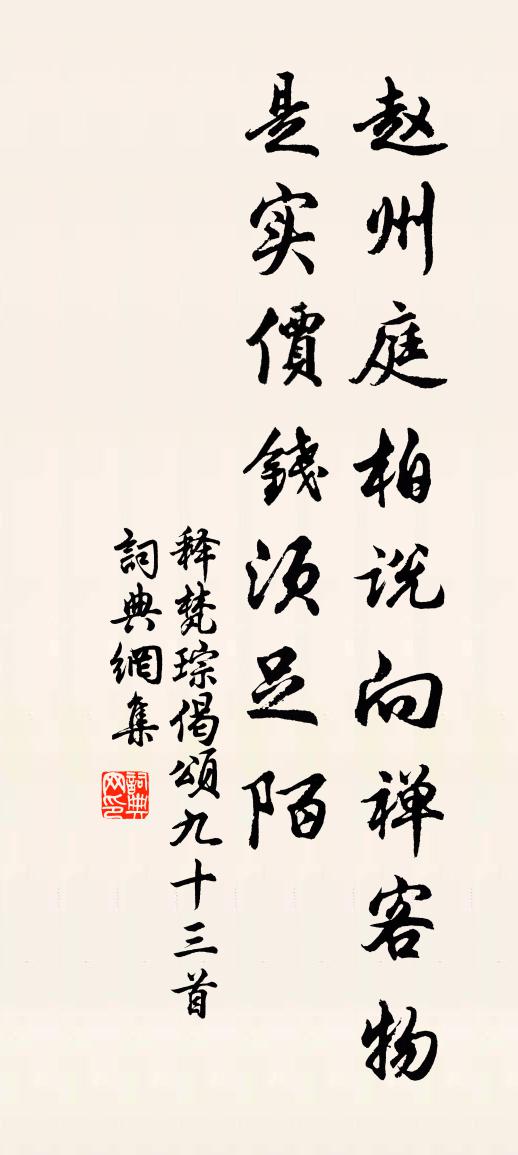 赵州庭柏说向禅客物
是实價錢须足陌
释梵琮偈頌九十三首
詞典網集
詞典网印